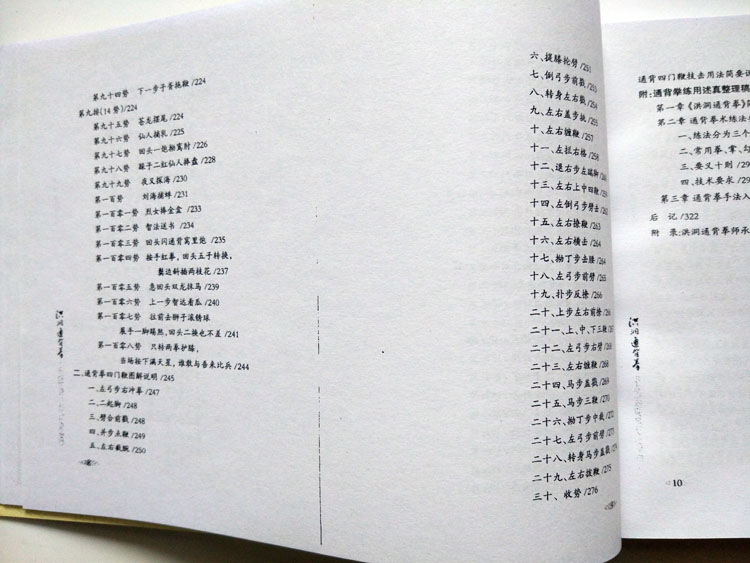 第九十四势 下一步子胥拖鞭/224
第九排(14势)/224
第九十五势 苍龙摆尾/224
第九十六势 仙人摘乳/225
第九十七势 回头一炮拗鸾肘/226
第九十八势 跺子二红仙人捧盘/228
第九十九势 夜叉探海/230
第一百势 刘海捕蝉/231
第一百零一势 烈女捧金盆/233
第一百零二势 智法送书/234
第一百零三势 回头闪通背窝里炮/235
第一百零四势 按手红拳,回头五子转换,
鬓边斜插两枝花/237
第一百零五势 急回头双龙抹马/239
第一百零六势 上一步智远看瓜/240
第一百零七势 往前去狮子滚绣球
展手一脚踢煞,回头二换也不差/241
第一百零八势 只转两拳护膝,
当场按下满天星,谁敢与吾来比兵/244
二.通背拳四门鞭图解说明/245
一.左弓步右冲拳/247
二.二起脚/248
三.劈台前戳/248
四.并步点鞭/249
五.左右截腕/250
洪洞通背拳
六、提膝抡劈/251
七、倒弓步前戳/253
八、转身左右戳/254
九、左右盖步挑/255
十、左右缠鞭/257
十一、左抵右格/258
十二、退右步左踹脚
十三、左右上中四鞭/259
十四、左倒弓步劈击
十五、左右撩鞭/263
十六、左右横击/264
十七、拗丁步击腰/264
十八、左弓步前劈/265
十九、扑步反撩/266
二十、上步左右前撩/266
二十一、上、中、下三鞭
二十二、左弓步右劈/268
二十三、左右缠鞭/268
二十四、马步盖戳/269
二十五、马步三鞭/270
二十六、拗丁步中截/272
二十七、左弓步前劈/273
二十八、转身马步盖戳
二十九、左右拨鞭/275
三十、收势/276
通背四门鞭技击用法简要说
附:通背拳练用述真整理稿
第一章《洪洞通背拳》
第二章 通背拳术练法
一、练法分为三个
二、常用拳、掌、勾
三、要义十则/29
四、技术要求/29
第三章 通背拳手法入
后记/322
附录:洪洞通背拳师承
洪洞通背拳
10